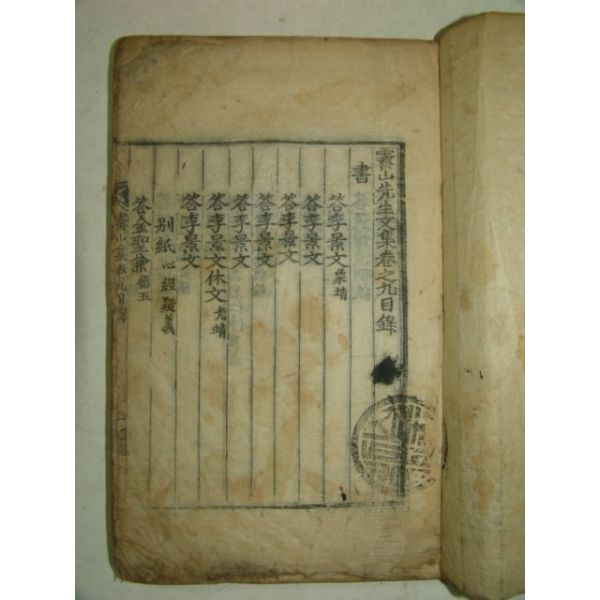 霽山先生文集卷之九目錄
書
答李景文象靖
答李景文
答李景文
答李景文
答李景文
答李景文休文光靖
答李景文
別紙心經疑義
答金聖
霽山集卷九目錄